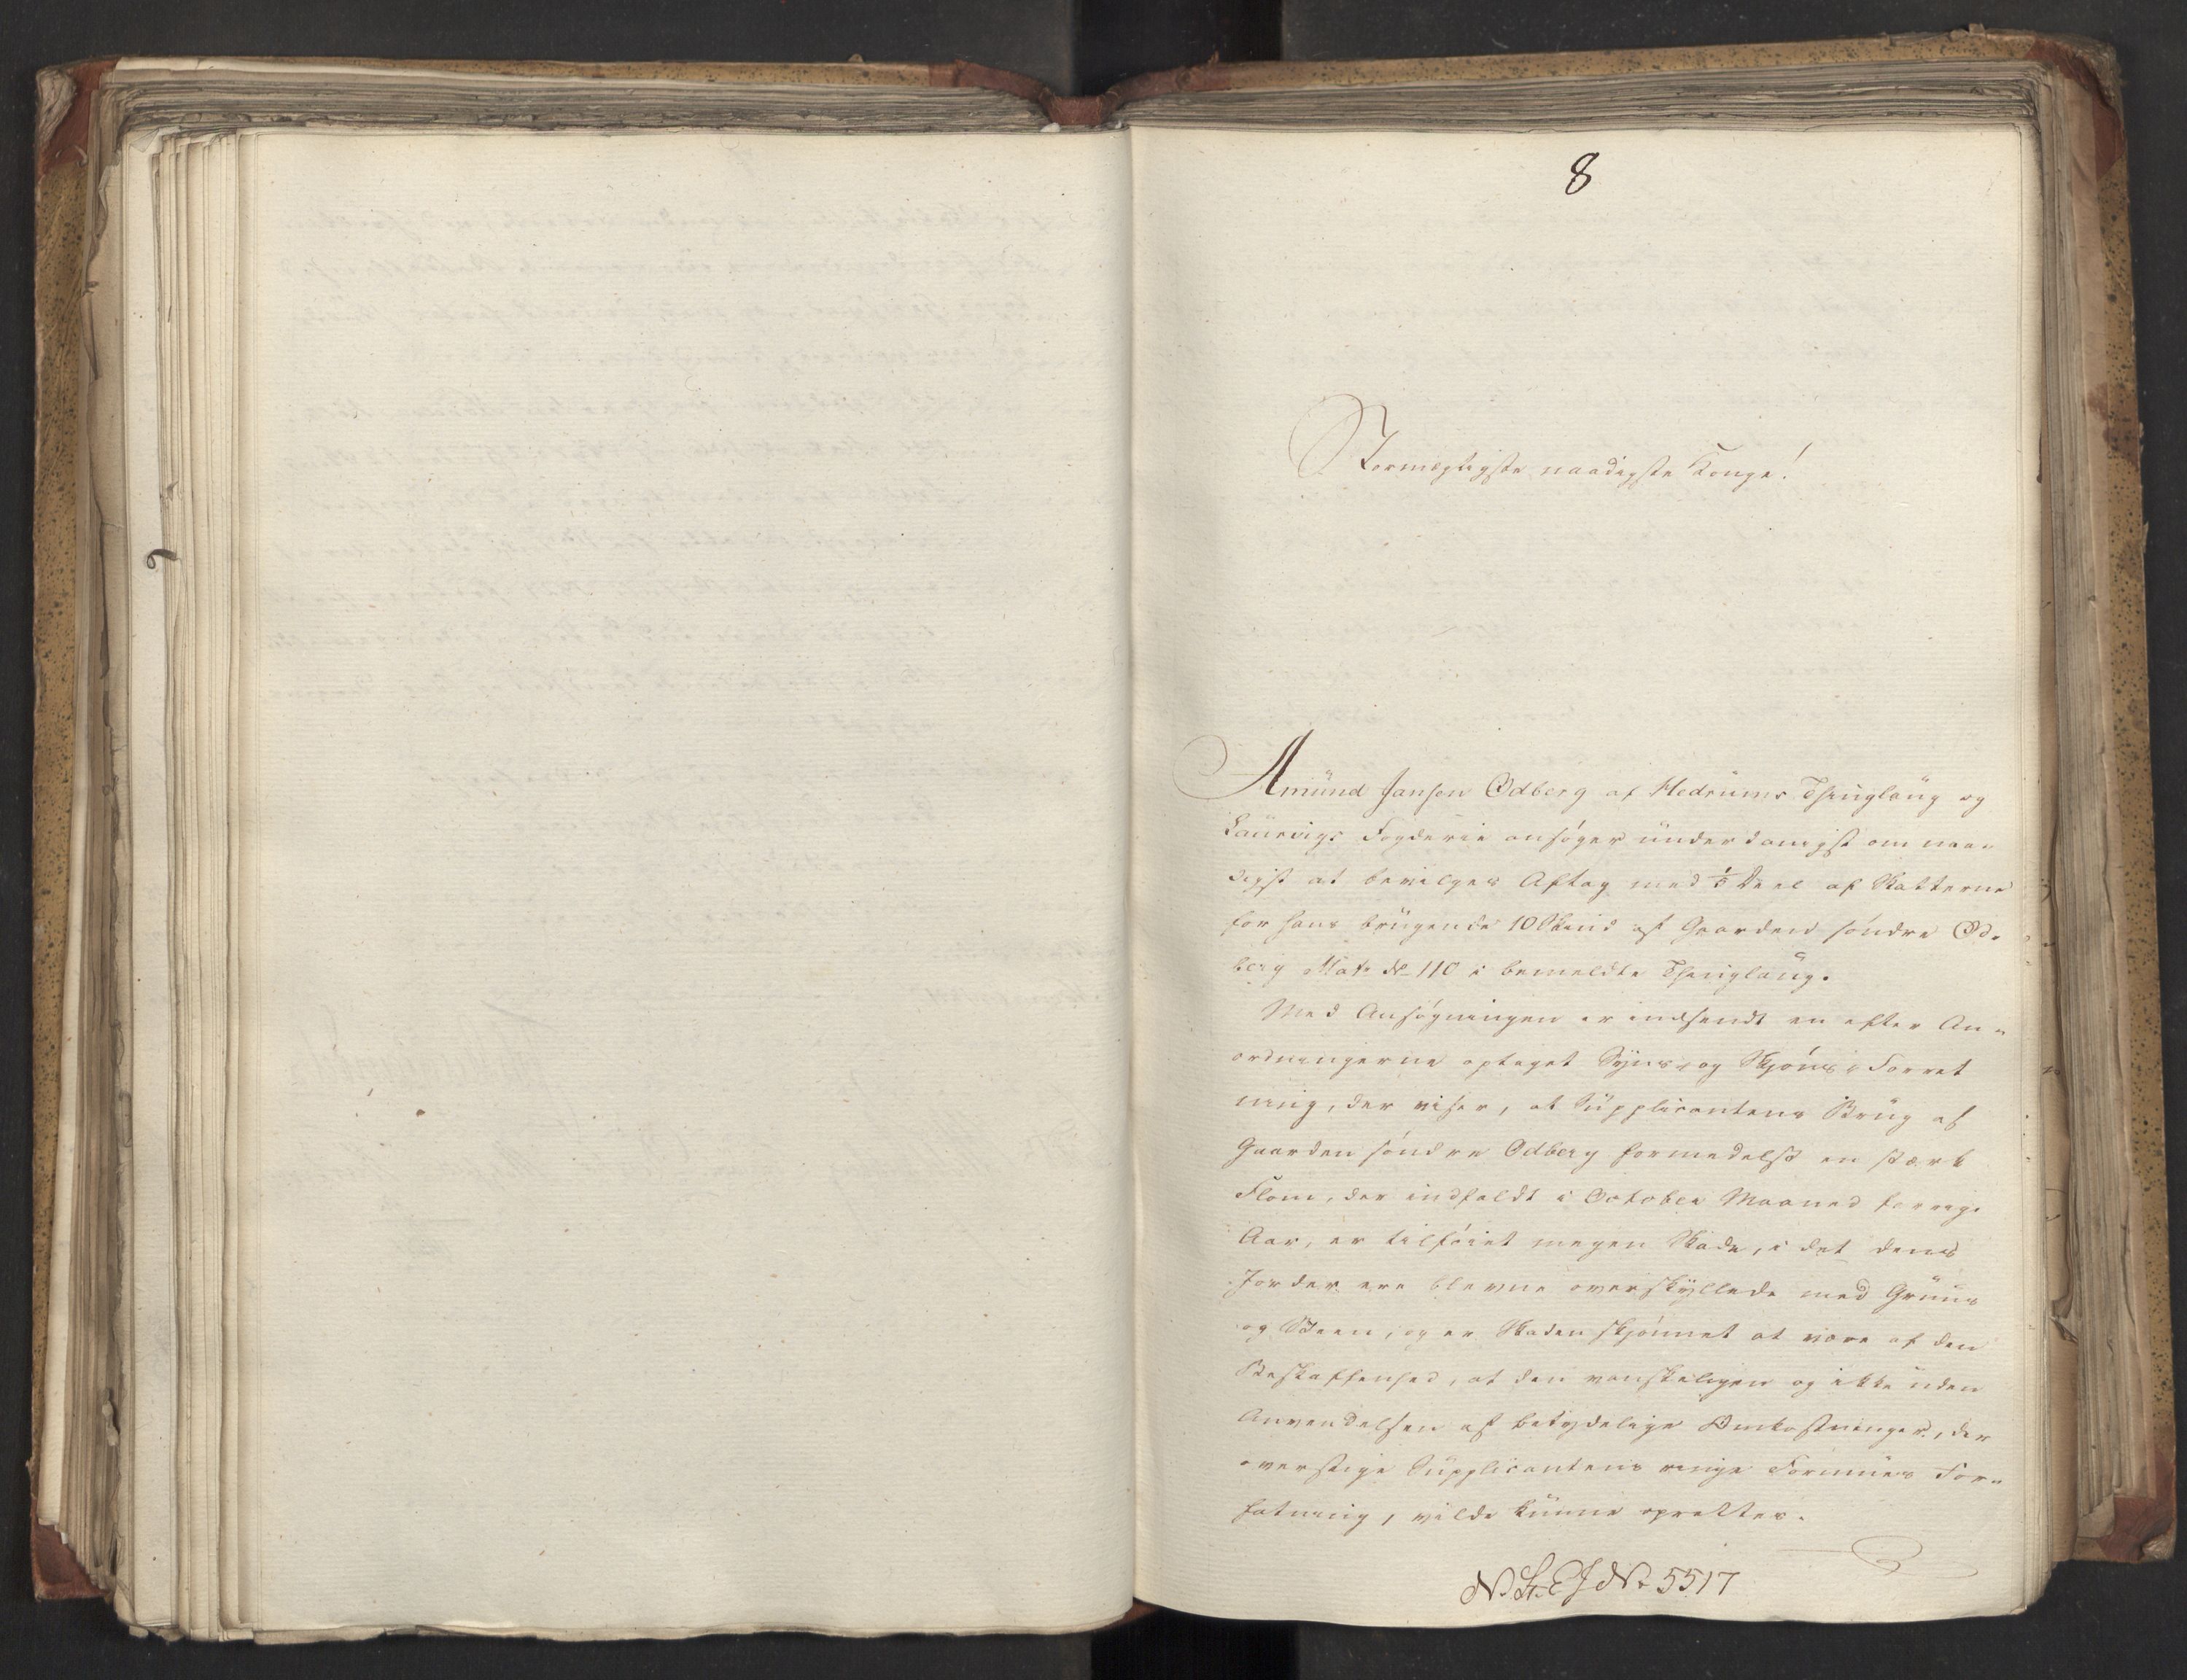 8
Stormægtigste naadigste Konge!
Amund Jansen Odberg af Hedrums Thinglaug og
Laurvigs Fogderie ansøger underdanigst om naa-
digst at bevilges Aftag med 1/3 Deel af Skatterne
for hans brugende 10 Skind af Gaarden søndre Od-
berg Matr No 110 i bemeldte Thinglaug.
Med Ansøgningen er indsendt en efter An-
ordningerne optaget Syns- og Skjøns-Forret
ning, der viser, at Supplicantens Brug af
Gaarden søndre Odberg formedelst en stærk
Flom, der indfaldt i October Maaned forrige
Aar, er tilføiet megen Skade, i det dens
Jorder ere blevne overskyllede med Gruus
og Steen, og er Skaden skjønnet at være af den
Beskaffenhed, at den vanskeligen og ikke uden
Anvendelsen af betydelige Omkostninger, der
overstige Supplicantens ringe Formues For-
fatning, vilde kunne oprettes.
No 5517